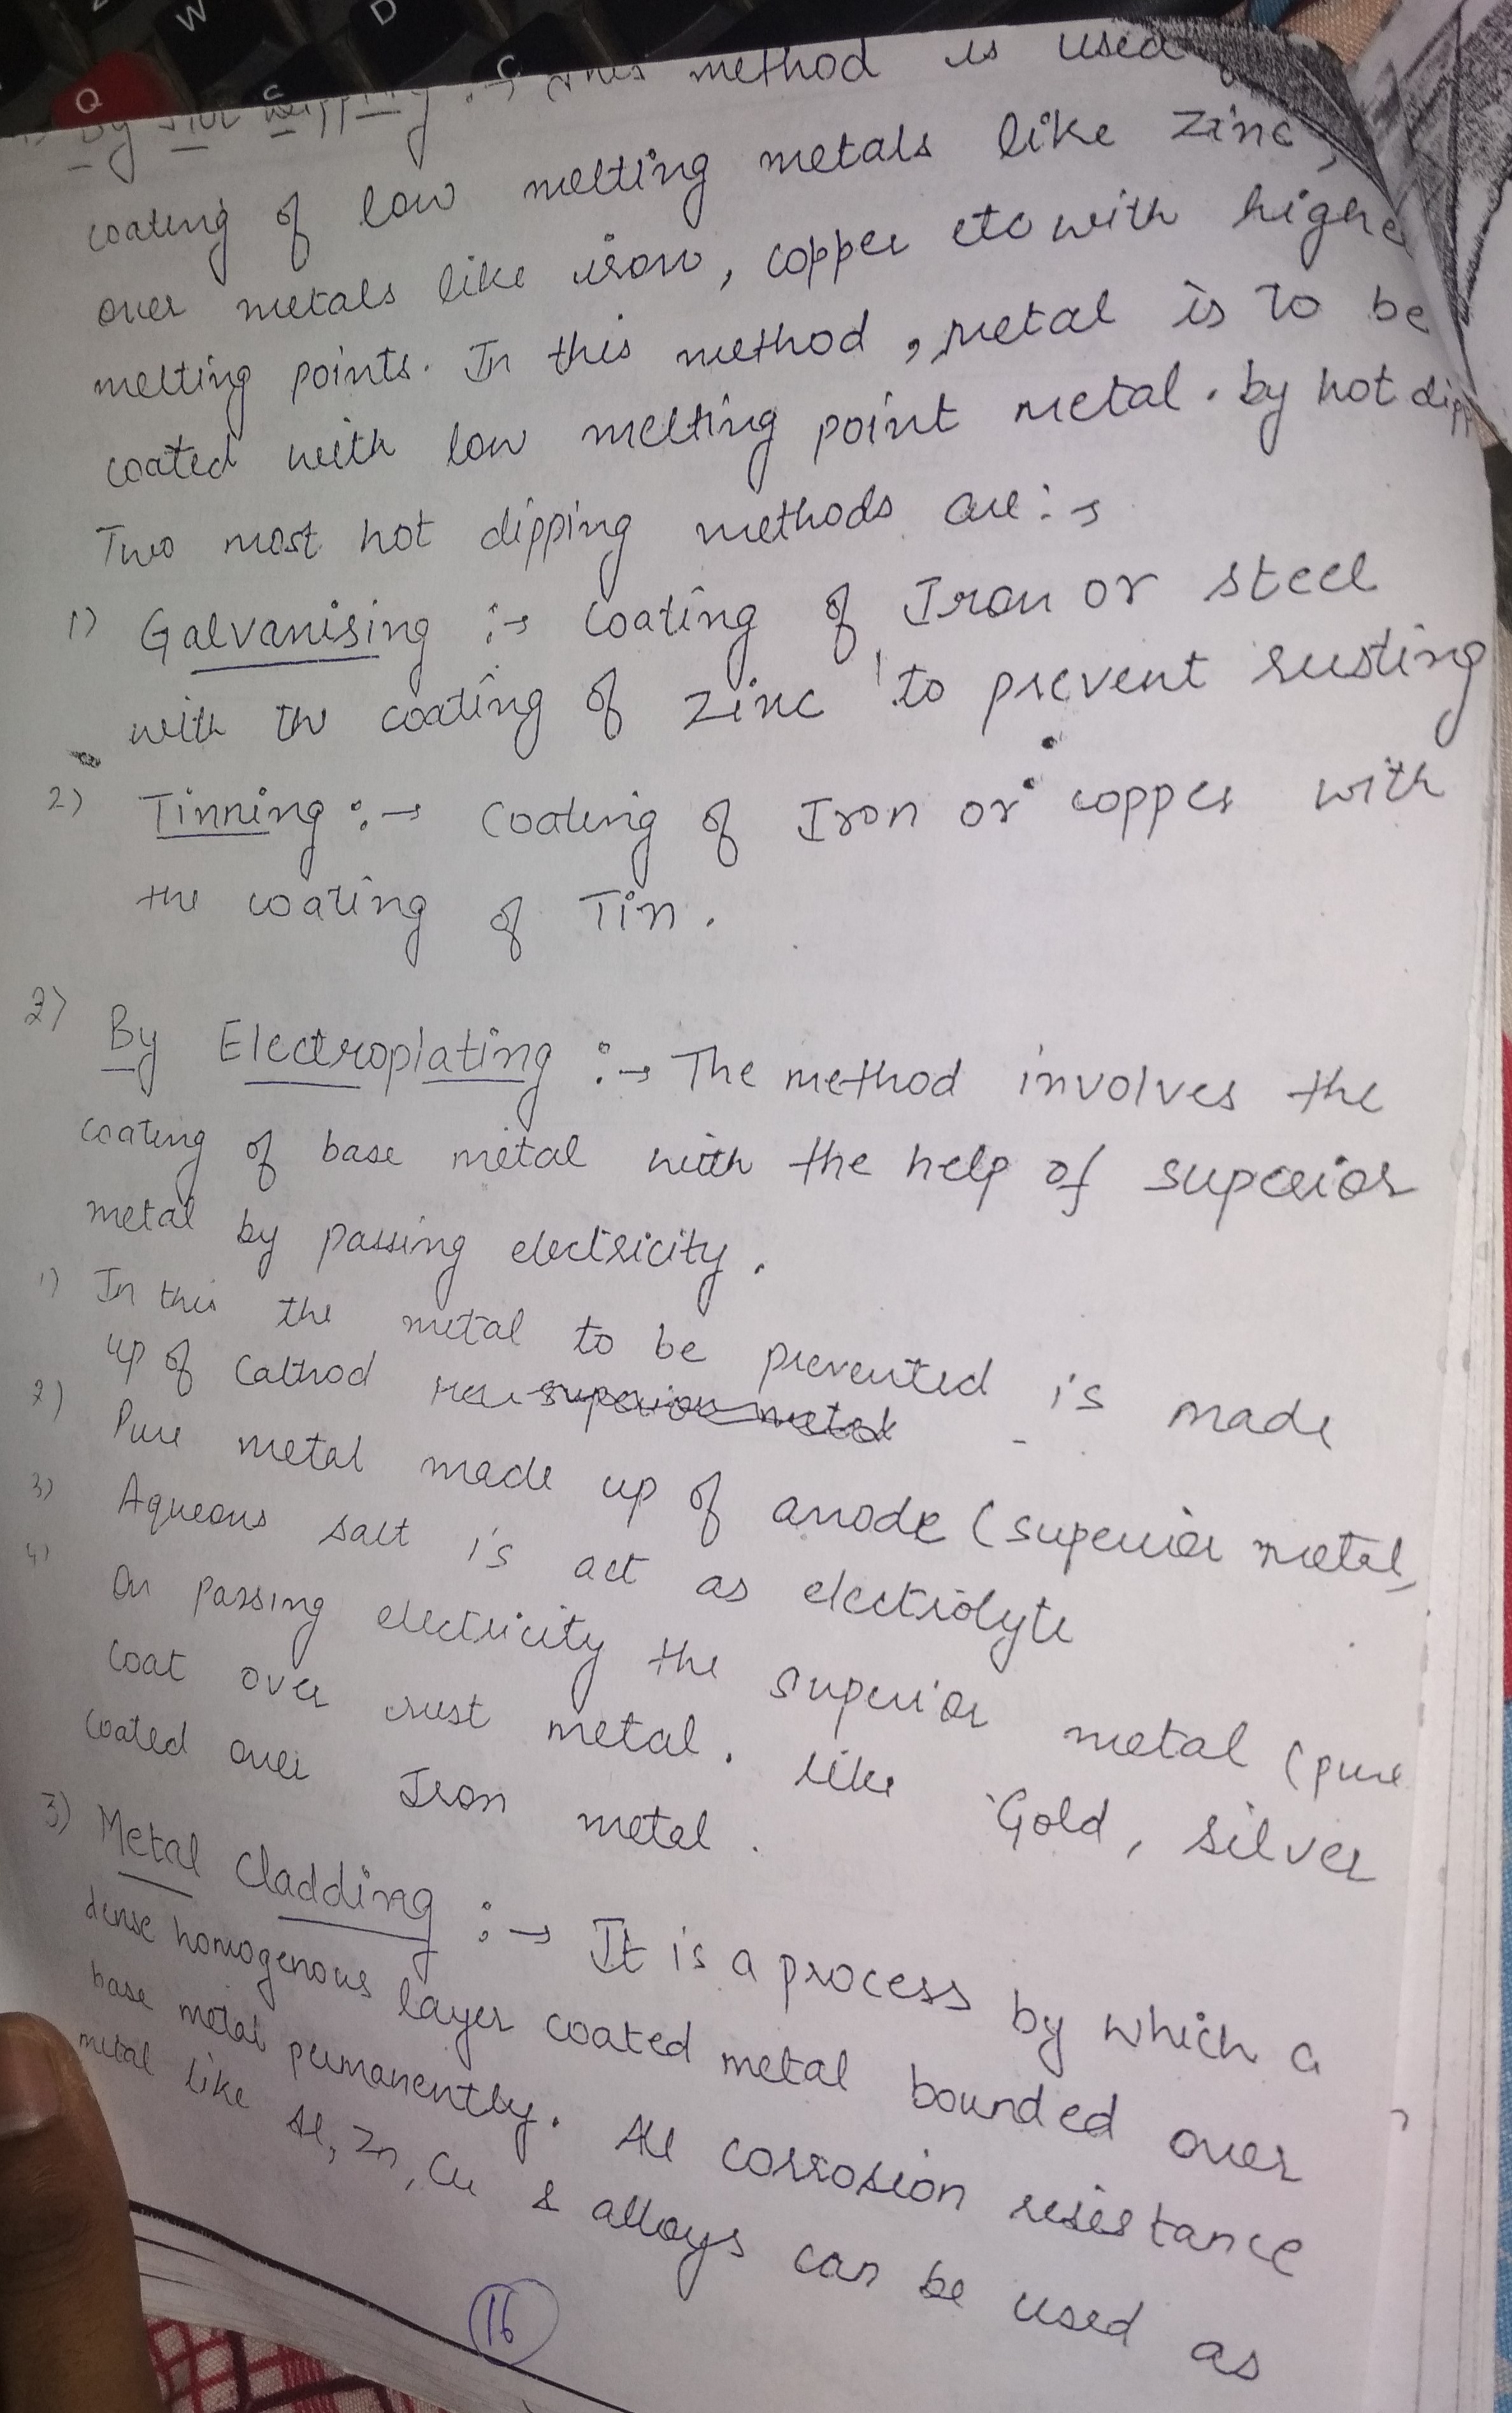 By Hot Dipping :→ This method is used
coating of low melting metals like zinc,
over metals like iron, copper etc with highe
melting points. In this method, metal is to be
coated with low melting point metal. by hot dipp
Two most hot dipping methods are :→
1) Galvanising :→ Coating of Iron or steel
with the coating of zinc to prevent rusting
2) Tinning :→ Coating of Iron or copper with
the coating of Tin.
2) By Electroplating :→ The method involves the
coating of base metal with the help of superior
metal by passing electricity.
1) In this the metal to be prevented is made
up of Cathod superior metal
2) Pure metal made up of anode (superior metal,
3) Aqueous salt is act as electrolyte
4) On passing electricity the superior metal (pure
coat over rust metal. like Gold, silver
coated over Iron metal.
3) Metal Cladding :→ It is a process by which a
dense homogenous layer coated metal bounded over
base metal permanently. All corrosion resistance
metal like Al, Zn, Cu & alloys can be used as
16
Q
W
D
S
C